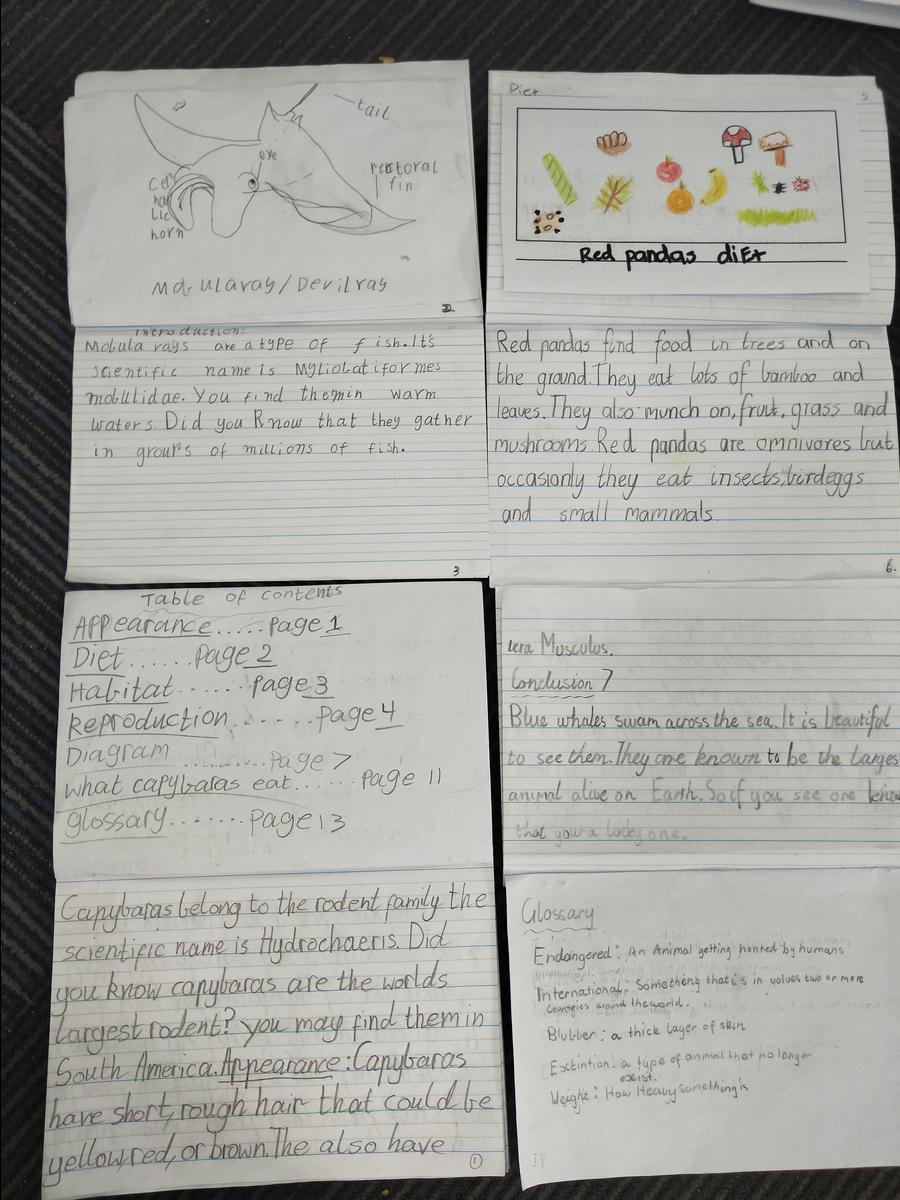 tail
eye
Pectoral
fin
horn
Mobularays/Devilrays
2
Introduction:
Mobula rays are a type of fish. It's
scientific name is Myliobatiformes
mobulidae. You find themin warm
waters. Did you know that they gather
in groups of millions of fish.
3
Diet
5
Red pandas diEt
Red pandas find food in trees and on
the ground. They eat lots of bamboo and
leaves. They also munch on, fruit, grass and
mushrooms. Red pandas are omnivores but
occasionly they eat insects, birdeggs
and small mammals.
6.
Table of contents
Appearance..... Page 1
Diet...... Page 2
Habitat....... Page 3
Reproduction....... Page 4
Diagram .......... Page 7
what capybaras eat...... Page 11
glossary....... Page 13
Capybaras belong to the rodent family the
scientific name is Hydrochaeris. Did
you know capybaras are the worlds
largest rodent? you may find them in
South America. Appearance: Capybaras
have short, rough hair that could be
yellow, red, or brown. The also have
1
tera Musculus.
Conclusion 7
Blue whales swam across the sea. It is beautiful
to see them. They are known to be the larges
animal alive on Earth. So if you see one know
that your a lucky one.
Glossary
Endangered: An Animal getting honted by humans
International: Something that is in volves two or more
countries around the world.
Blubber: a thick layer of skin
Exctintion: a type of animal that no longer
exist.
Weight: How Heavy something is